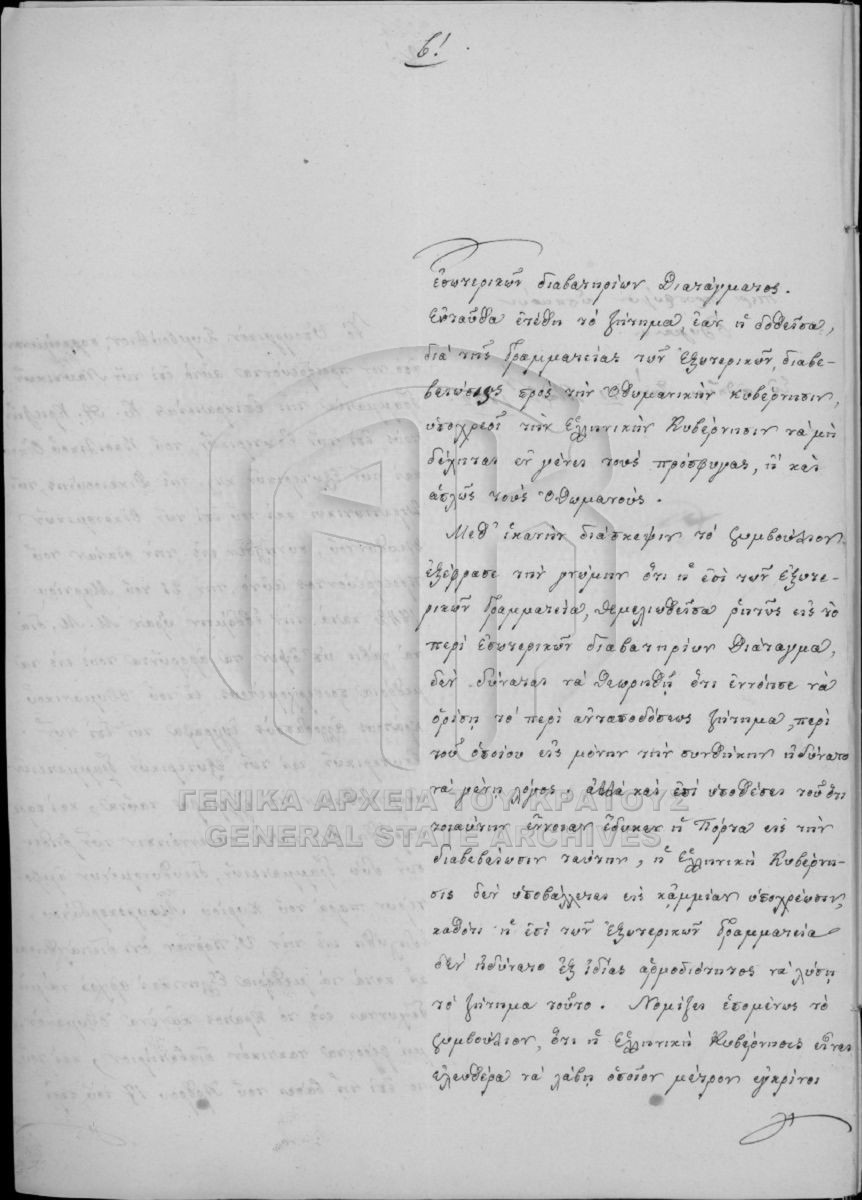 6!
ἐσωτερικῶν διαβατηρίων Διατάγματος.
Ἐνταῦθα ἐτέθη τὸ ζήτημα, ἐὰν ἡ δοθεῖσα,
διὰ τῆς Γραμματείας τῶν Ἐξωτερικῶν, διαβε-
βαίωσις πρὸς τὴν Ὀθωμανικὴν κυβέρνησιν,
ὑποχρεοῖ τὴν Ἑλληνικὴν Κυβέρνησιν νὰ μὴ
δέχηται ἐν γένει τοὺς πρόσφυγας, ἢ καὶ
ἁπλῶς τοὺς Ὀθωμανούς.
Μεθ' ἱκανὴν διάσκεψιν τὸ ζυμβούλιον
ἐξέφρασε τὴν γνώμην ὅτι ἡ ἐπὶ τῶν Ἐξωτε-
ρικῶν Γραμματεία, θεμελιωθεῖσα ῥητῶς εἰς τὸ
περὶ ἐσωτερικῶν διαβατηρίων Διάταγμα,
δὲν δύναται νὰ θεωρηθῇ ὅτι ἐννόησε νὰ
ὁρίσῃ τὸ περὶ ἀνταποδόσεως ζήτημα, περὶ
τοῦ ὁποίου εἰς μόνην τὴν συνθήκην ἠδύνατο
νὰ γένῃ λόγος. ἀλλὰ καὶ ἐπὶ ὑποθέσει τοῦ ὅτι
τοιαύτην ἔννοιαν ἔδωκεν ἡ Πόρτα εἰς τὴν
διαβεβαίωσιν ταύτην, ἡ Ἑλληνικὴ Κυβέρνη-
σις δὲν ὑποβάλλεται εἰς κᾀμμίαν ὑποχρέωσιν,
καθότι ἡ ἐπὶ τῶν Ἐξωτερικῶν Γραμματεία
δὲν ἠδύνατο ἐξ ἰδίας ἁρμοδιότητος νὰ λύσῃ
τὸ ζήτημα τοῦτο. Νομίζει ἑπομένως τὸ
ζυμβούλιον, ὅτι ἡ Ἑλληνικὴ Κυβέρνησις εἶναι
ἐλευθέρα νὰ λάβῃ ὁποῖον μέτρον ἐγκρίνοι
ΓΕΝΙΚΑ ΑΡΧΕΙΑ ΤΟΥ ΚΡΑΤΟΥΣ
GENERAL STATE ARCHIVES